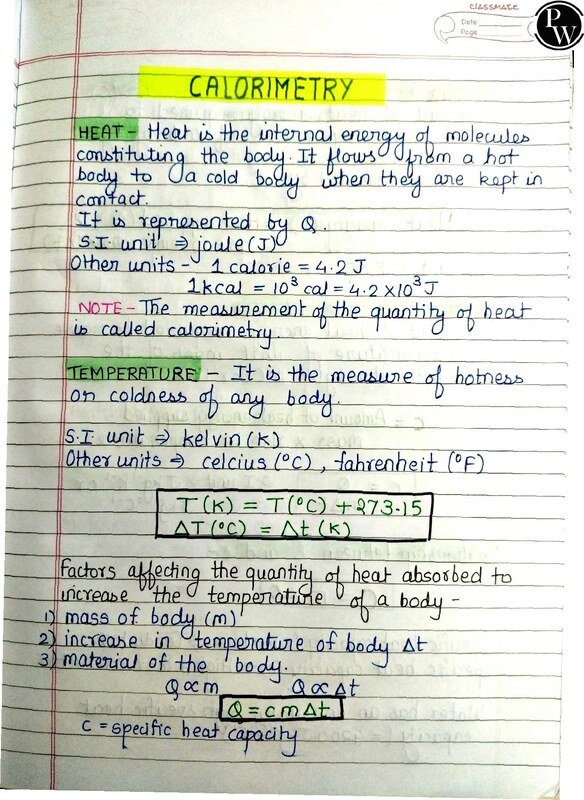 CLASSMATE
Date
Page
PW
CALORIMETRY
HEAT - Heat is the internal energy of molecules
constituting the body. It flows from a hot
body to a cold body when they are kept in
contact.
It is represented by Q.
S.I. unit ⇒ joule (J)
Other units - 1 calorie = 4.2 J
1 kcal = 10³ cal = 4.2 × 10³ J
NOTE - The measurement of the quantity of heat
is called calorimetry
TEMPERATURE - It is the measure of hotness
or coldness of any body.
S.I unit ⇒ kelvin (K)
Other units ⇒ celcius (°C), fahrenheit (°F)
T (K) = T (°C) + 273.15
ΔT (°C) = Δt (K)
Factors affecting the quantity of heat absorbed to
increase the temperature of a body -
1) mass of body (m)
2) increase in temperature of body Δt
3) material of the body.
Q ∝ m Q ∝ Δt
Q = c m Δt
C = specific heat capacity